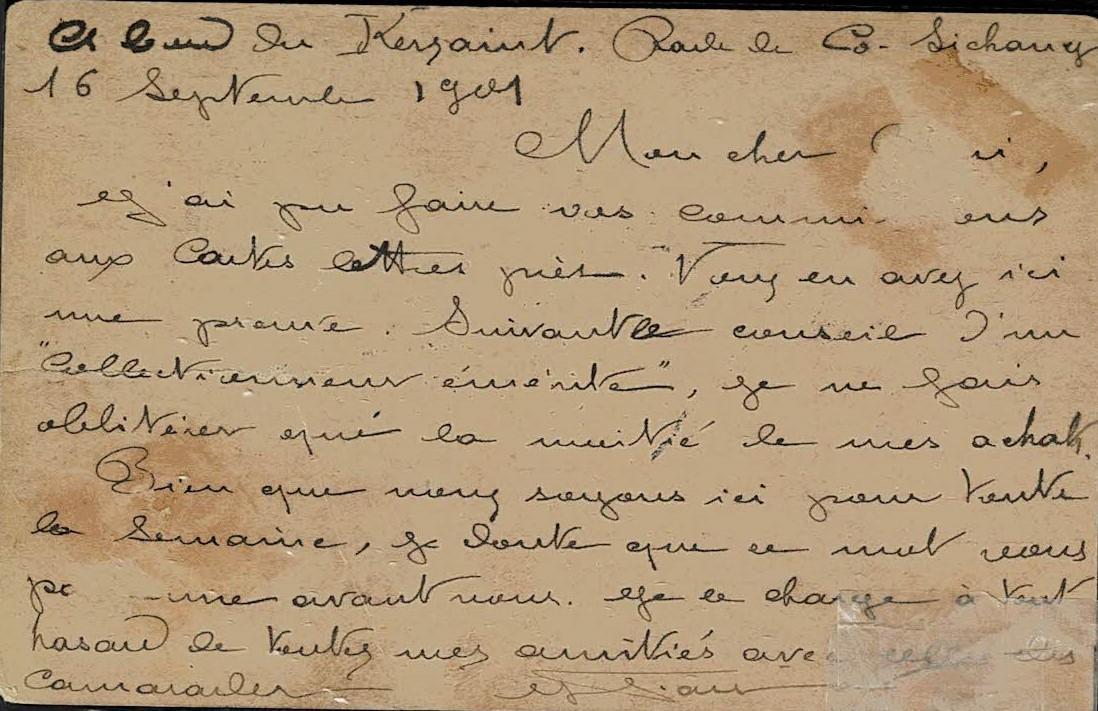 A bord du Kersaint. Rade de Co-Sichang
16 Septembre 1901
Mon cher
J'ai pu faire vos commi ons
aux cartes lettres près. Vous en avez ici
une preuve. Suivant le conseil d'un
"collectionneur émérite", je ne fais
oblitérer que la moitié de mes achats.
Bien que nous soyons ici pour toute
la semaine, je doute que ce mot vous
avant nous. Je le charge à tout
hasard de toutes mes amitiés avec celles des
camarades